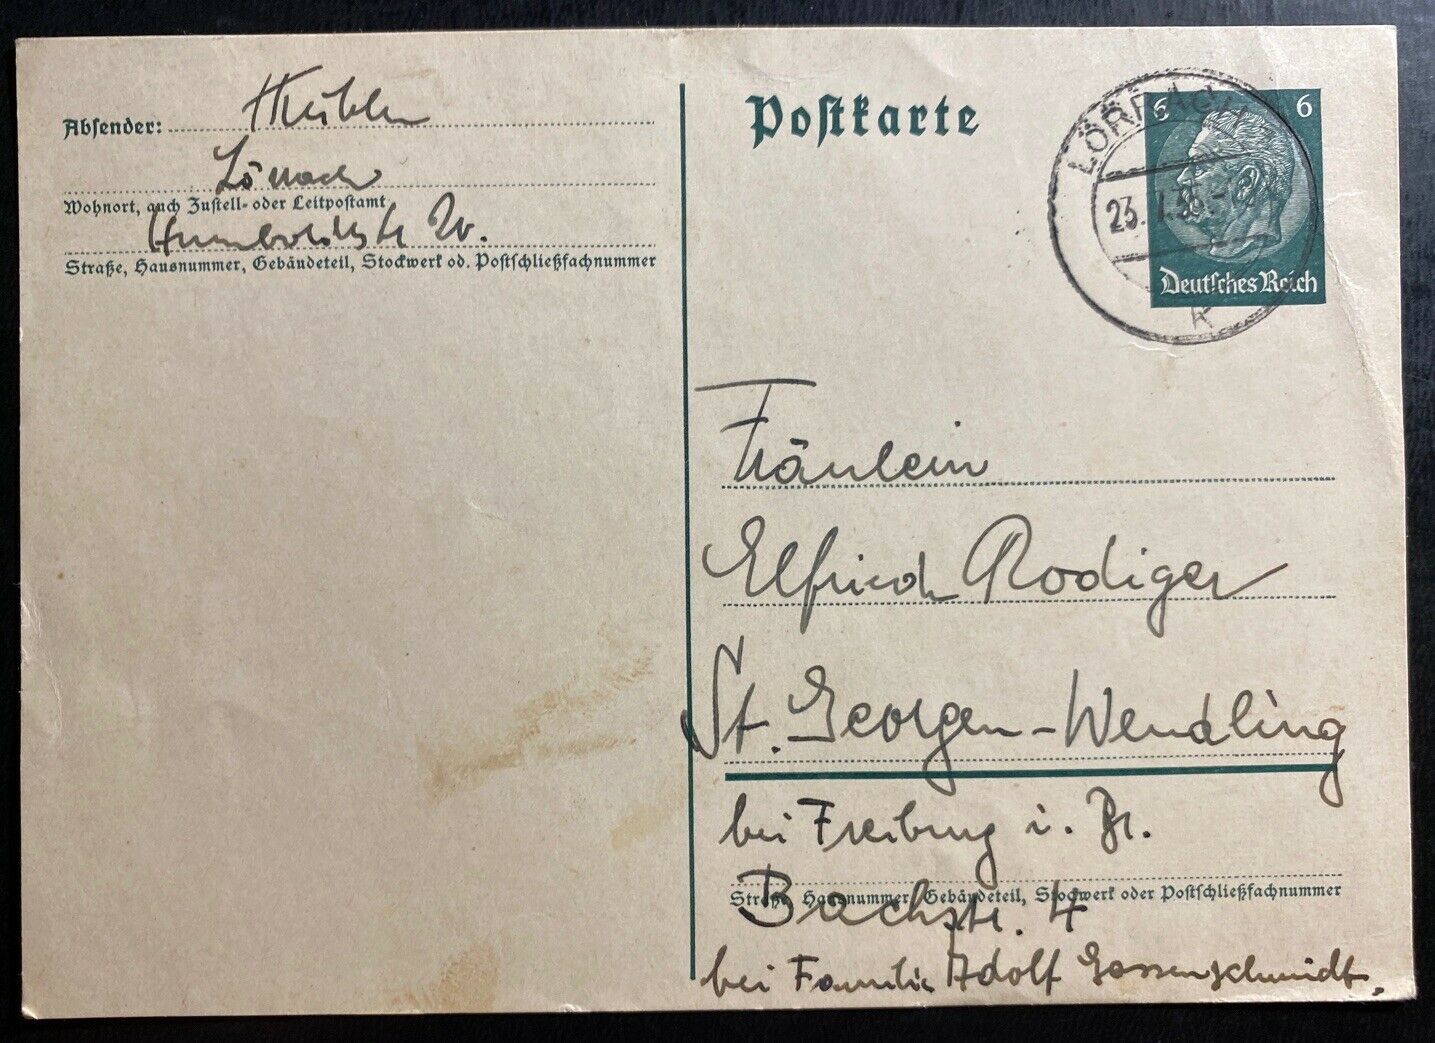 Postkarte
Absender:
Lörrach
Wohnort, auch Zustell- oder Leitpostamt
Humboldtstr
Straße, Hausnummer, Gebäudeteil, Stockwerk od. Postschließfachnummer
LÖRRACH
23.
6 6
Deutsches Reich
Fräulein
Elfriede Rodiger
St. Georgen-Wendling
bei Freiburg i. Br.
Straße, Hausnummer, Gebäudeteil, Stockwerk oder Postschließfachnummer
4
bei Familie Adolf